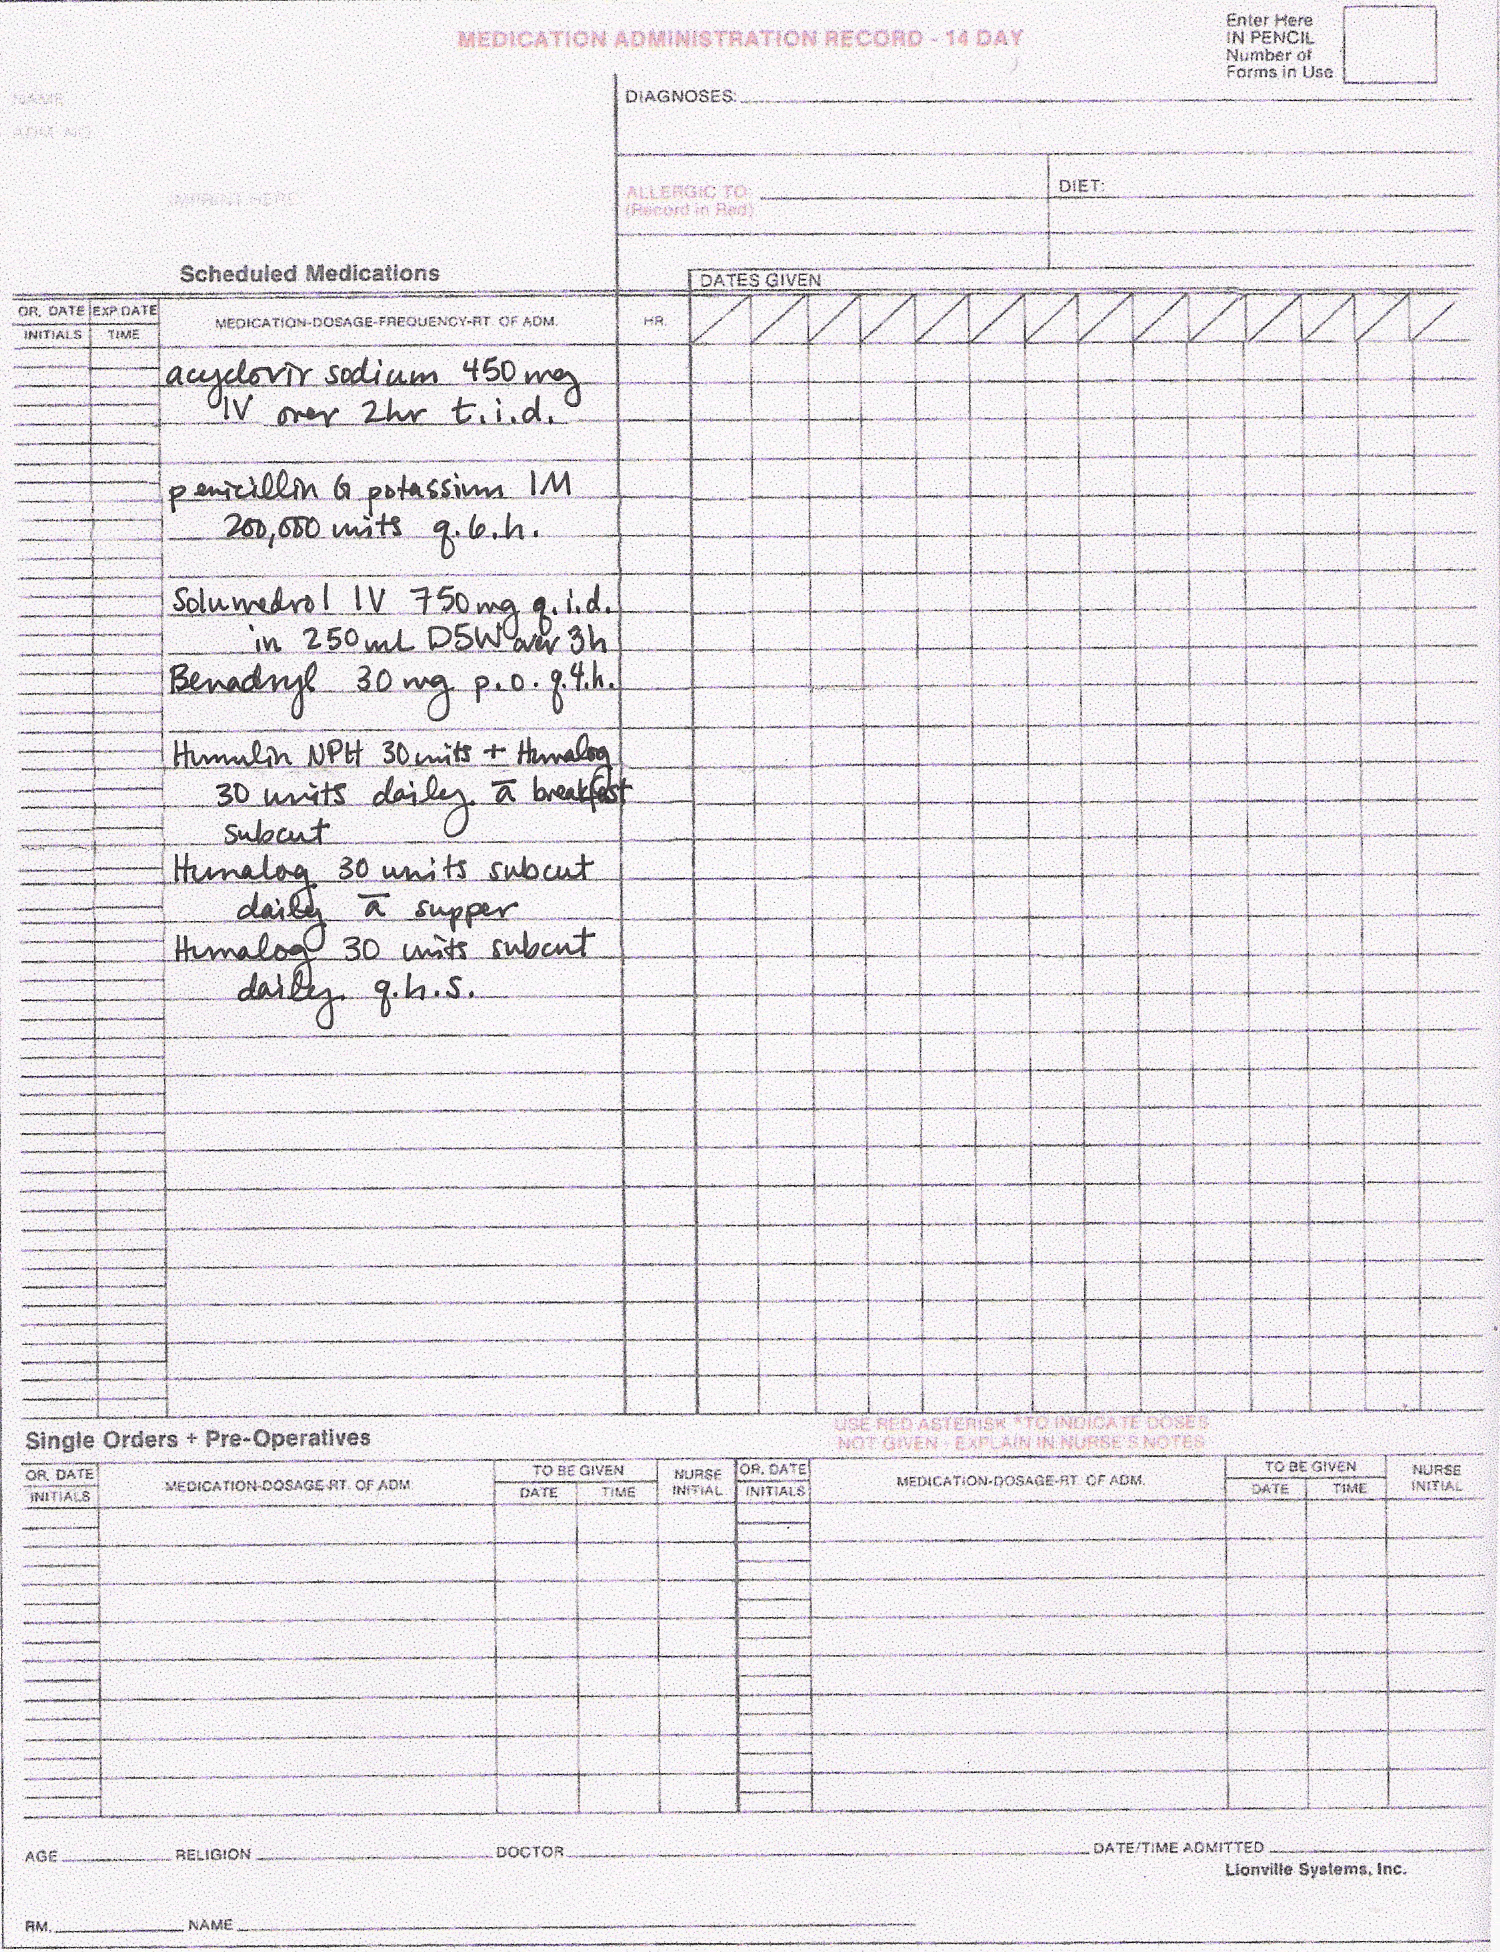 MEDICATION ADMINISTRATION RECORD - 14 DAY
Enter Here
IN PENCIL
Number of
Forms in Use
NAME
ADM. NO.
IMPRINT HERE
DIAGNOSES:
ALLERGIC TO:
(Record in Red)
DIET:
Scheduled Medications
DATES GIVEN
OR. DATE EXP DATE
INITIALS TIME
MEDICATION-DOSAGE-FREQUENCY-RT. OF ADM.
HR.
acyclovir sodium 450 mg
IV over 2hr t.i.d.
penicillin G potassium IM
200,000 units q.6.h.
Solumedrol IV 750 mg q.i.d.
in 250 mL D5W over 3h
Benadryl 30 mg p.o. q.4.h.
Humulin NPH 30 units + Humalog
30 units daily a̅ breakfast
subcut
Humalog 30 units subcut
daily a̅ supper
Humalog 30 units subcut
daily q.h.s.
USE RED ASTERISK *TO INDICATE DOSES
NOT GIVEN - EXPLAIN IN NURSE'S NOTES
Single Orders + Pre-Operatives
OR. DATE
INITIALS
MEDICATION-DOSAGE-RT. OF ADM.
TO BE GIVEN
DATE TIME
NURSE
INITIAL
OR. DATE
INITIALS
MEDICATION-DOSAGE-RT. OF ADM.
TO BE GIVEN
DATE TIME
NURSE
INITIAL
AGE RELIGION DOCTOR DATE/TIME ADMITTED
Lionville Systems, Inc.
RM. NAME